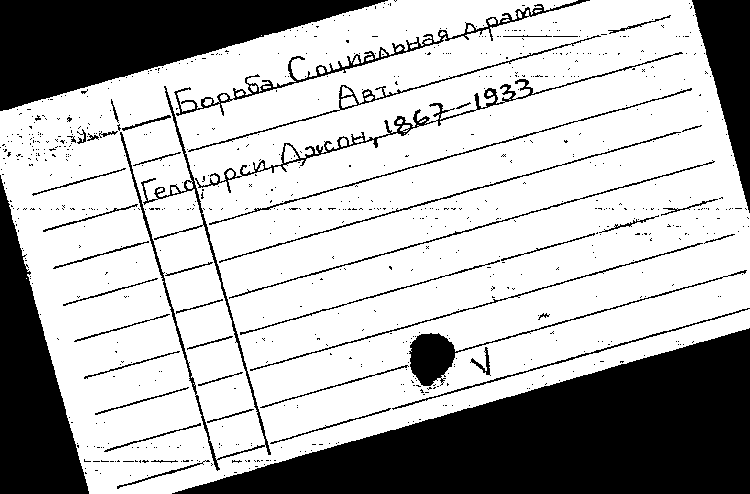 Борьба. Социальная драма
Авт.:
Гелсуорси, Джон, 1867-1933